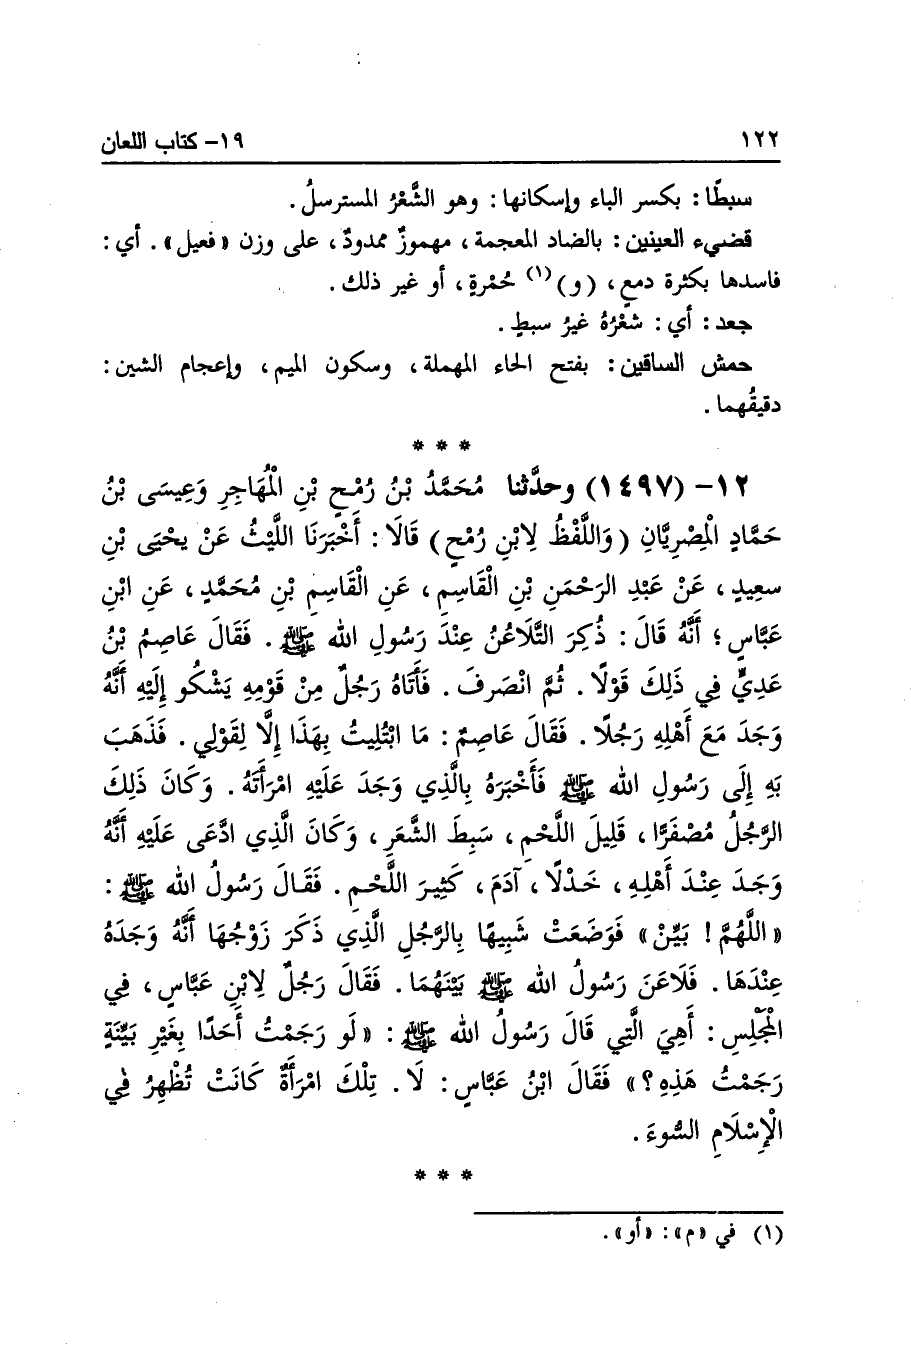 ١٢٢ ١٩- كتاب اللعان
سبطًا: بكسر الباء وإسكانها: وهو الشَّعْرُ المسترسلُ.
قضيء العينين: بالضاد المعجمة، مهموزٌ ممدودٌ، على وزن «فعيل». أي:
فاسدها بكثرة دمعٍ، (و)(١) حُمْرةٍ، أو غير ذلك.
جعد: أي: شعْرُهُ غيرُ سبطٍ.
حمش الساقين: بفتح الحاء المهملة، وسكون الميم، وإعجام الشين:
دقيقُهما.
* * *
١٢- (١٤٩٧) وحدَّثنا مُحَمَّدُ بْنُ رُمْحِ بْنِ الْمُهَاجِرِ وَعِيسَى بْنُ
حَمَّادٍ الْمِصْرِيَّانِ (وَاللَّفْظُ لِابْنِ رُمْحٍ) قَالَا: أَخْبَرَنَا اللَّيْثُ عَنْ يحْيَى بْنِ
سعِيدٍ، عَنْ عَبْدِ الرَحْمَنِ بْنِ الْقَاسِمِ، عَنِ الْقَاسِمِ بْنِ مُحَمَّدٍ، عَنِ ابْنِ
عَبَّاسٍ؛ أَنَّهُ قَالَ: ذُكِرَ التَّلَاعُنُ عِنْدَ رَسُولِ الله ﷺ. فَقَالَ عَاصِمُ بْنُ
عَدِيٍّ فِي ذَلِكَ قَوْلًا. ثُمَّ انْصَرفَ. فَأَتَاهُ رَجُلٌ مِنْ قَوْمِهِ يَشْكُو إِلَيْهِ أَنَّهُ
وَجَدَ مَعَ أَهْلِهِ رَجُلًا. فَقَالَ عَاصِمٌ: مَا ابْتُلِيتُ بِهَذَا إِلَّا لِقَوْلِي. فَذَهَبَ
بِهِ إِلَى رَسُولِ الله ﷺ فَأَخْبَرَهُ بِالَّذِي وَجَدَ عَلَيْهِ امْرَأَتَهُ. وَكَانَ ذَلِكَ
الرَّجُلُ مُصْفَرًّا، قَلِيلَ اللَّحْمِ، سَبِطَ الشَّعَرِ، وَكَانَ الَّذِي ادَّعَى عَلَيْهِ أَنَّهُ
وَجَدَ عِنْدَ أَهْلِهِ، خَدْلًا، آدَمَ، كَثِيرَ اللَّحْمِ. فَقَالَ رَسُولُ الله ﷺ:
«اللَّهُمَّ! بَيِّنْ» فَوَضَعَتْ شَبِيهًا بِالرَّجُلِ الَّذِي ذَكَرَ زَوْجُهَا أَنَّهُ وَجَدَهُ
عِنْدَهَا. فَلَاعَنَ رَسُولُ الله ﷺ بَيْنَهُمَا. فَقَالَ رَجُلٌ لِابْنِ عَبَّاسٍ، فِي
الْمَجْلِسِ: أَهِيَ الَّتِي قَالَ رَسُولُ الله ﷺ: «لَو رَجَمْتُ أَحَدًا بِغَيْرِ بَيِّنَةٍ
رَجَمْتُ هَذِهِ؟» فَقَالَ ابْنُ عَبَّاسٍ: لَا. تِلْكَ امْرَأَةٌ كَانَتْ تُظْهِرُ فِي
الْإِسْلَامِ السُّوءَ.
* * *
(١) في «م»: «أو».